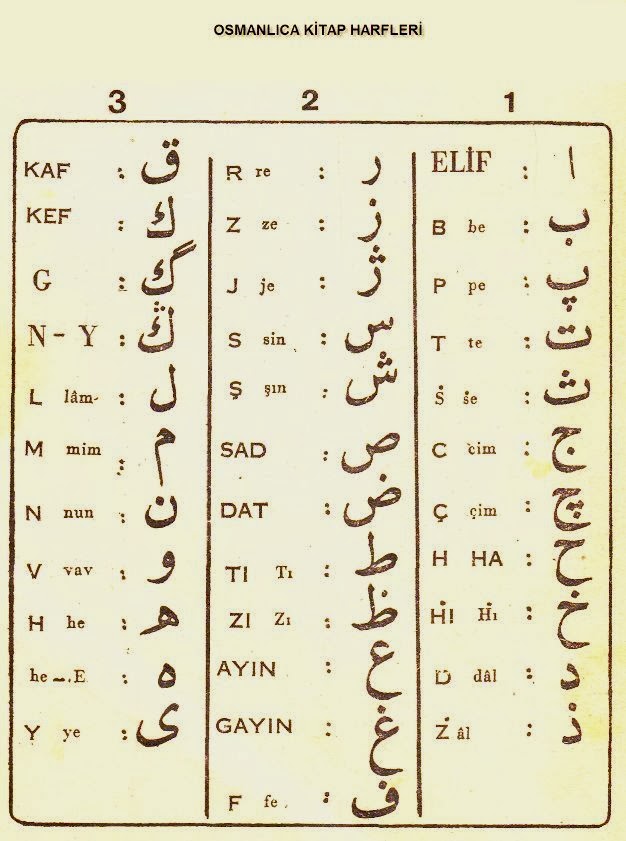 OSMANLICA KİTAP HARFLERİ
3 2 1
ELİF : ا
B be : ب
P pe : پ
T te : ت
Ṡ ṡe : ث
C cim : ج
Ç çim : چ
H HA : ح
ḢI Ḣı : خ
D dâl : د
Ż âl : ذ
R re : ر
Z ze : ز
J je : ژ
S sin : س
Ş şın : ش
SAD : ص
DAT : ض
TI Tı : ط
ZI Zı : ظ
AYIN : ع
GAYIN : غ
F fe : ف
KAF : ق
KEF : ك
G : گ
N - Y : ڭ
L lâm- : ل
M mim : م
N nun : ن
V vav : و
H he : ھ
he - .E : ه
Y ye : ى